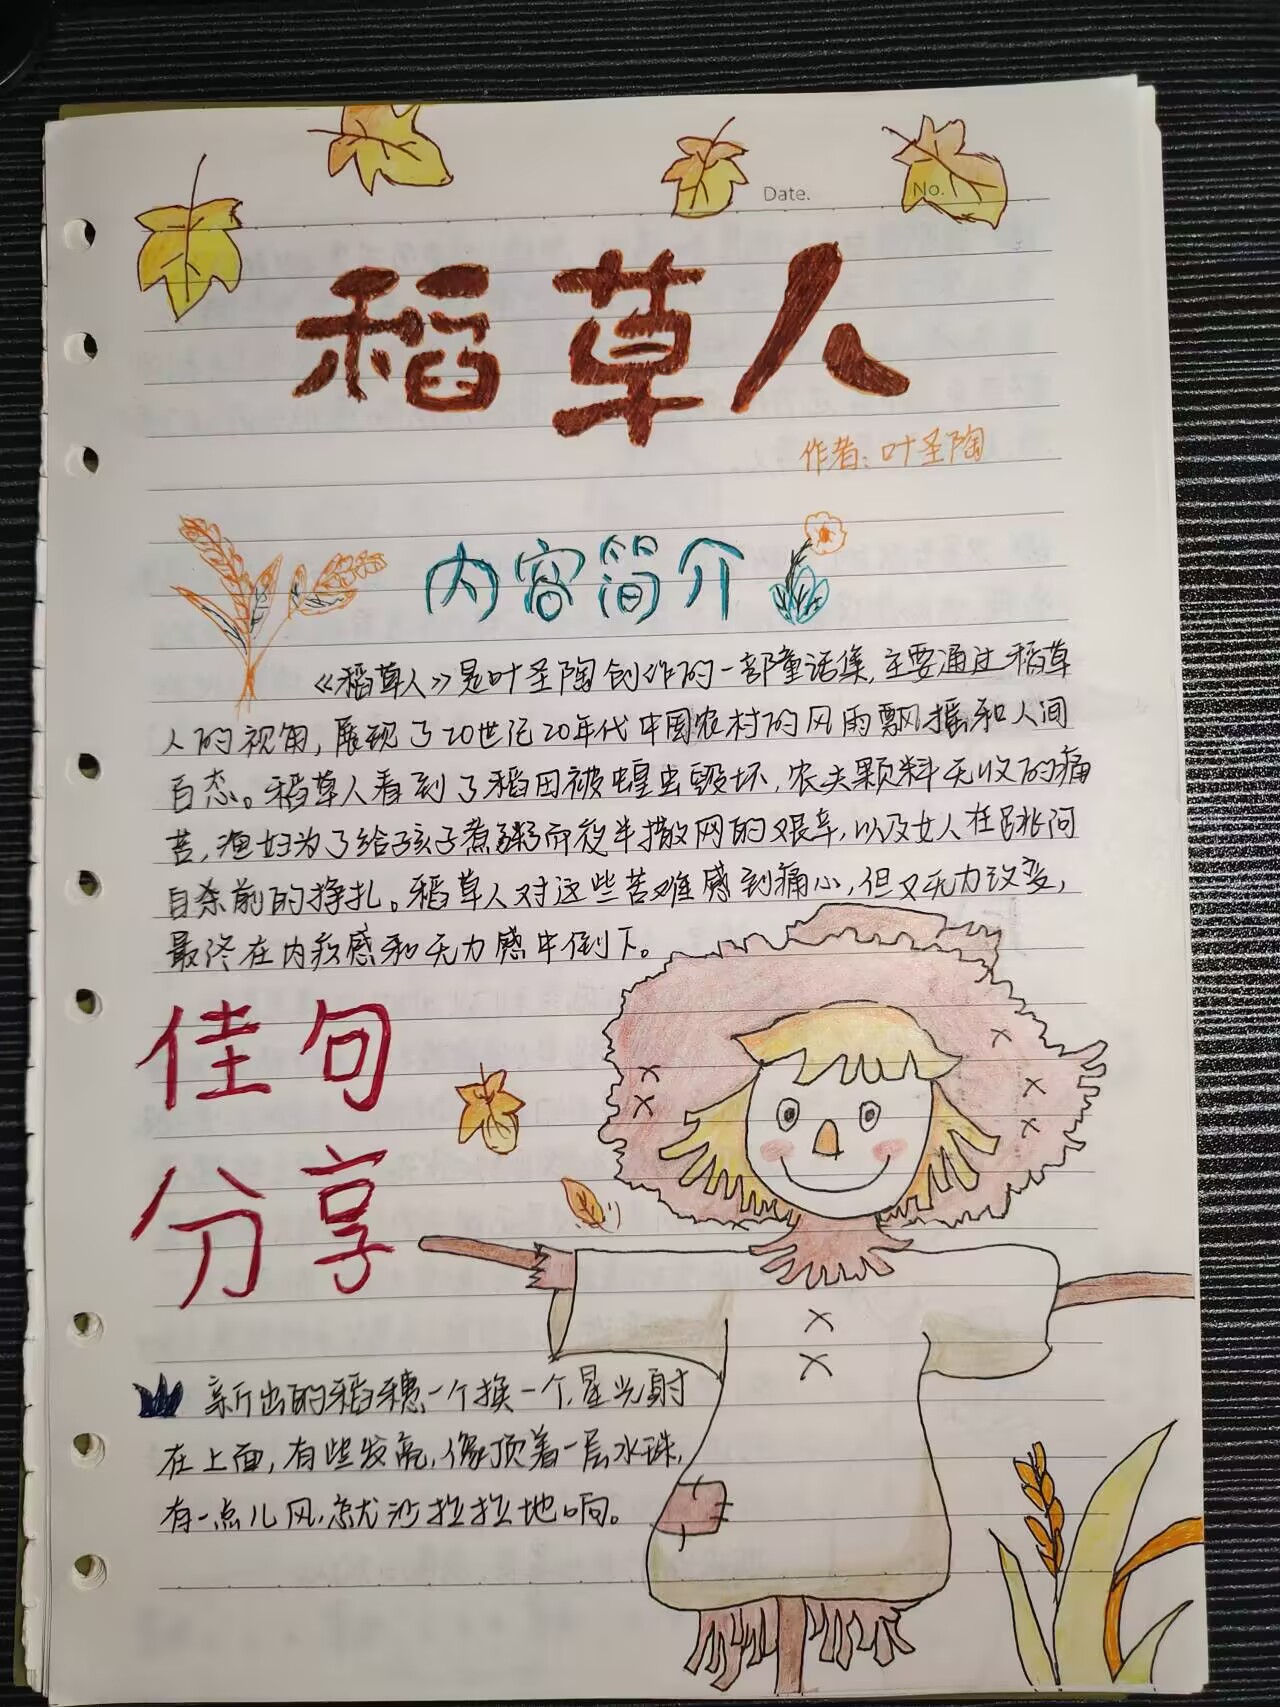 Date.
No.
稻草人
作者：叶圣陶
内容简介
《稻草人》是叶圣陶创作的一部童话集，主要通过稻草
人的视角，展现了20世纪20年代中国农村的风雨飘摇和人间
百态。稻草人看到了稻田被蝗虫毁坏，农夫颗料无收的痛
苦，渔妇为了给孩子煮粥而夜半撒网的艰辛，以及女人在跳河
自杀前的挣扎。稻草人对这些苦难感到痛心，但又无力改变，
最终在内疚感和无力感中倒下。
佳句
分享
新出的稻穗一个挨一个，星光射
在上面，有些发亮，像顶着一层水珠，
有一点儿风，就沙拉拉地响。